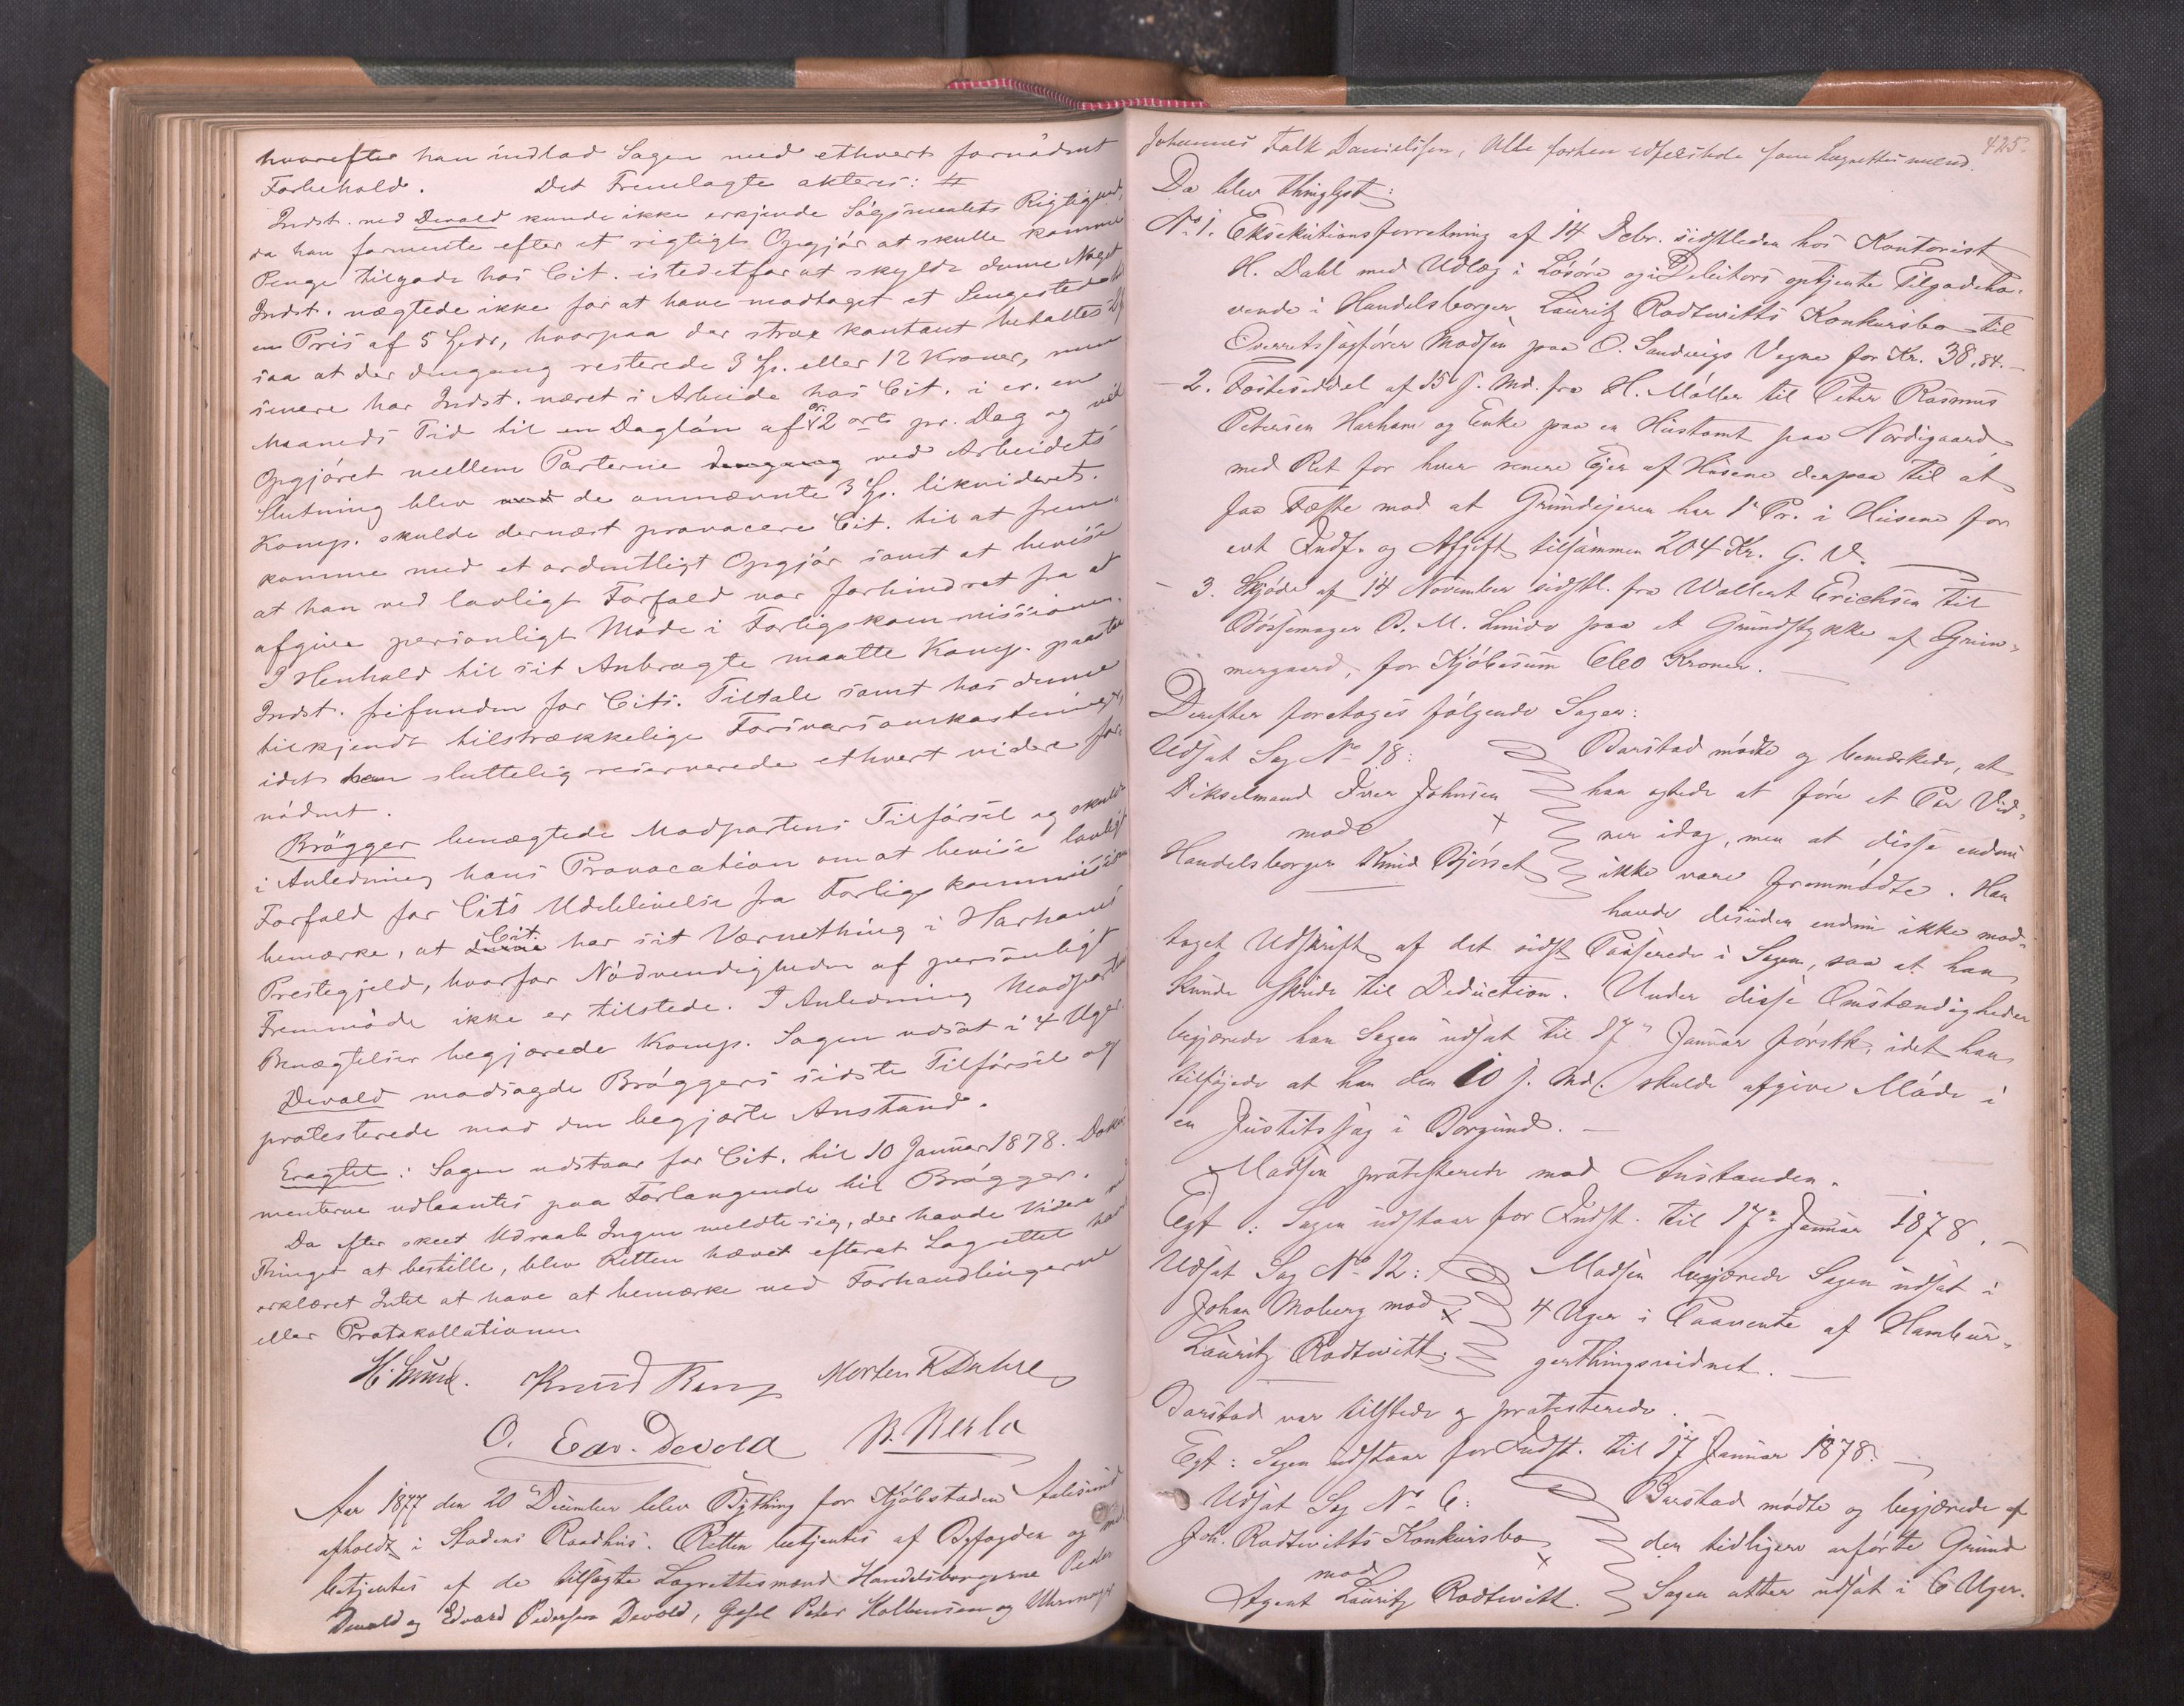 hvorefter han indlod Sagen med ethvert fornødent
Forbehold. Det Fremlagte akteres: #
Indst. ved Devold kunde ikke erkjende Søgsmaalets Rigtighed,
da han formente efter et rigtigt Opgjør at skulle komme
Penge tilgode hos Cit. istedetfor at skylde denne Noget
Indst. nægtede ikke for at have modtaget et Sengested
en Pris af 5 Spdr, hvorpaa der strax kontant betaltes 2
saa at der dengang resterede 3 Sp. eller 12 Kroner, men
senere har Indst. været i Arbeide hos Cit. i en
Maaneds Tid til en Dagløn af 2 ort pr. Dag og ved
Opgjøret mellem Parterne dengang ved Arbeidets
Slutning blev med de omnævnte 3 Sp. likvideret.
Komp. skulde dernæst provocere Cit. til at frem-
komme med et ordentligt Opgjør samt at bevise
at han ved lovligt Forfald var forhindret fra at
afgive personligt Møde i Forligskommissionen.
I Henhold til sit Anbragte maatte Komp. paastaa
Indst. frifunden for Cits. Tiltale samt hos denne
tilkjendt tilstrækkelige Forsvarsomkostninger,
idet han sluttelig reserverede ethvert videre for-
nødent.
Brøgger benægtede Modpartens Tilførsel og skulde
i Anledning hans Provocation om at bevise lovligt
Forfald for Cits Udeblivelse fra Forligskommissionen
bemærke, at denne Cit. har sit Værnething i Harhams
Prestegjeld, hvorfor Nødvendigheden af personligt
Fremmøde ikke er tilstede. I Anledning Modpartens
Benægtelser begjærede Komp. Sagen udsat i 4 Uger.
Devold modsagde Brøggers sidste Tilførsel og
protesterede mod den begjærte Anstand.
Eragtet: Sagen udstaar for Cit. til 10 Januar 1878. Doku-
menterne udlaantes paa Forlangende til Brøgger.
Da efter skeet Udraab Ingen meldte sig, der havde Videre ved
Thinget at bestille, blev Retten hævet efterat Lagrettet havde
erklæret Intet at have at bemærke ved Forhandlingerne
eller Protokollationen
Knud Morten R Dahle
O. Edv. Devold
Aar 1877 den 20 December blev Bything for Kjøbstaden Aalesund
afholdt i Stadens Raadhus. Retten betjentes af Byfogden og med-
betjentes af de tilsagte Lagrettesmænd Handelsborgerne Peder
Devold og Edvard Pedersen Devold, Gjestg. Peter Holbensen og Uhrmager
425.
Johannes Falk Danielssen, Alle forhen edfæstede som Lagrettesmænd.
Da blev thinglyst:
No 1. Eksekutionsforretning af 14 Decbr. sidstleden hos Kontorist
H. Dahl med Udlæg i Løsøre og i Debitors optjente Tilgodeha-
vende i Handelsborger Lauritz Rodtwitts Konkursbo til
Overretssagfører Madsen paa O. Sandvigs Vegne for Kr. 38,84.-
- 2. Festeseddel af 15 f. Md. fra H. Møller til Peter Rasmus
Petersen Harham og Enke paa en Hustomt paa Nordigaard
med Ret for hver senere Ejer af Husene derpaa til at
faa Fæste mod at Grundejeren har 1e Pr. i Husene for
evt Indf. og Afgift tilsammen 204 Kr. G. V.
- 3. Skjøde af 14 November sidstl. fra Wollert Erichsen til
Bøssemager B. M. Lunde paa et Grundstykke af Grim-
mergaard, for Kjøbesum 600 Kroner.
Derefter foretoges følgende Sager:
Udsat Sag No 18:
Dikselmand Iver Johnsen
mod
Handelsborger Knud Bjørset
Barstad mødte og bemærkede, at
han agtede at føre et Par Vid-
ner idag, men at disse endnu
ikke vare fremmødte. Han
havde desuden endnu ikke mod-
taget Udskrift af det sidst Passerede i Sagen, saa at han
kunde skride til Deduction. Under disse Omstændigheder
begjærede han Sagen udsat til 17de Januar førstk, idet han
tilføjede at han den 10 f. Md. skulde afgive Møde i
en Justitssag i Borgund.
Madsen protesterede mod Anstanden.
Egt: Sagen udstaar for Indst. til 17de Januar 1878.
Udsat Sag No 12:
Johan Moberg mod
Lauritz Rodtwitt.
Madsen begjærede Sagen udsat i
4 Uger i Paavente af Hambur-
gerthingsvidnet.
Barstad var tilstede og protesterede.
Egt: Sagen udstaar for Indst. til 17 Januar 1878.
Udsat Sag No 6:
Joh. Rodtwitts Konkursbo
mod
Agent Lauritz Rodtwitt.
Barstad mødte og begjærede af
den tidligere anførte Grund
Sagen atter udsat i 6 Uger.